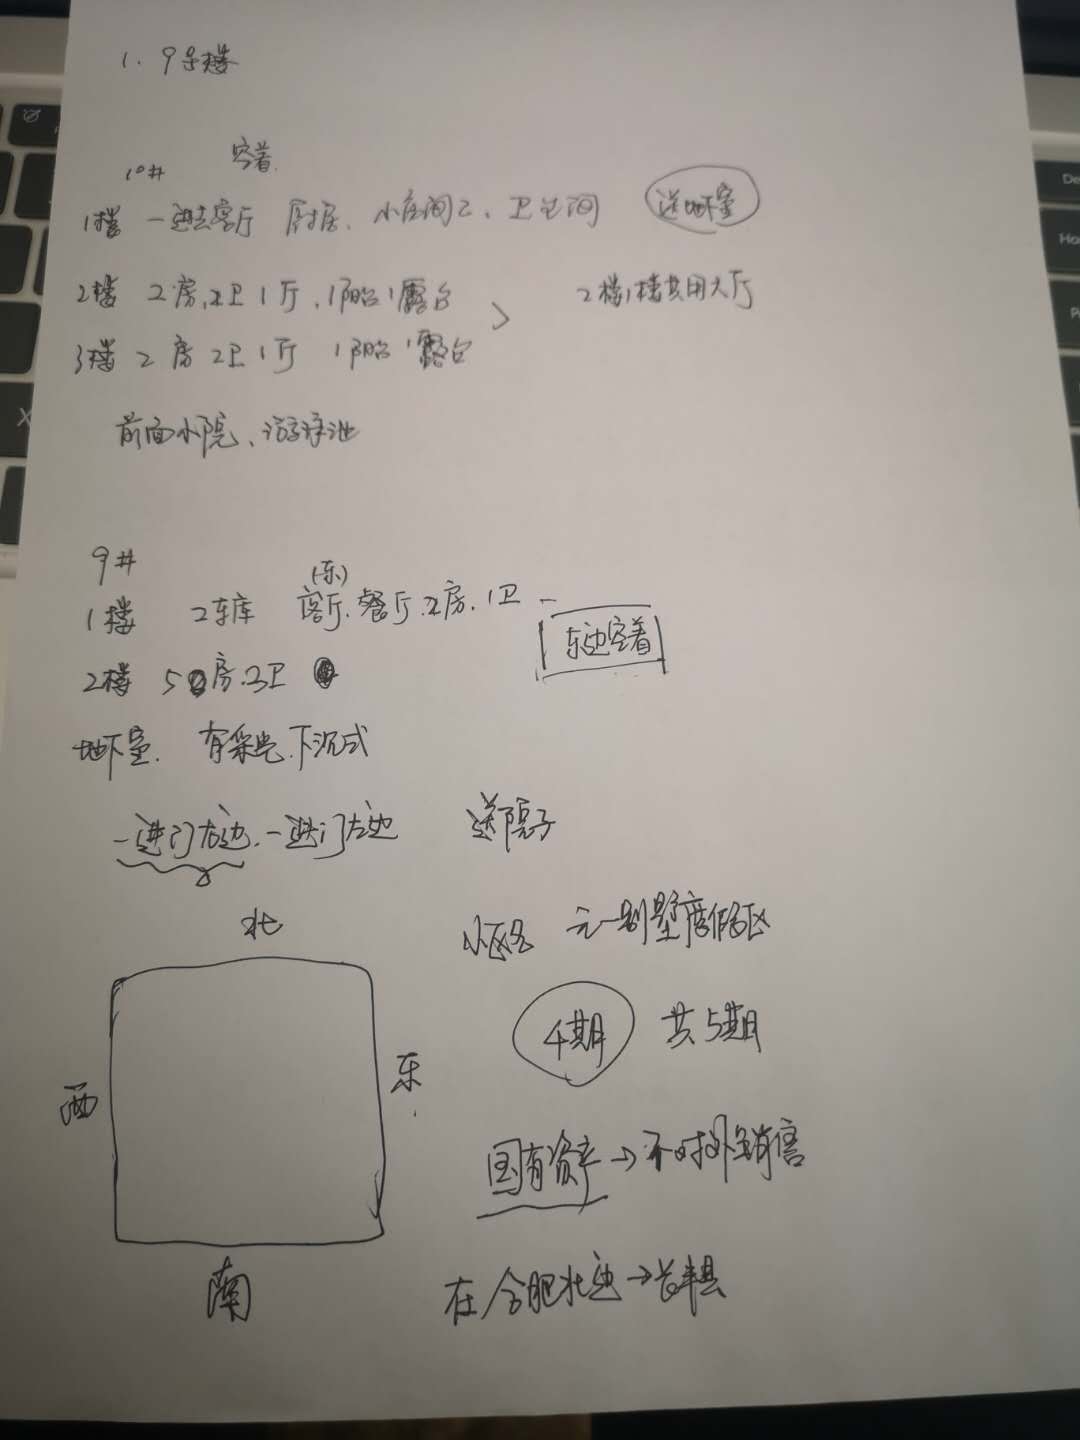 1. 9号楼
10# 空着.
1楼 一进去客厅 厨房、小房间2、卫生间 送地下室
2楼 2房,2卫1厅,1阳台1露台 > 2楼1楼共用大厅
3楼 2房2卫1厅 1阳台1露台
前面小院、游泳池
9#
1楼 2车库 (东)客厅.餐厅.2房.1卫 -
东边空着
2楼 5房.3卫
地下室. 有采光.下沉式
一进门右边.一进门左边 送院子
北
小区名 元一别墅度假区
4期 共5期
西 东
国有资产→不对外销售
南
在合肥北边→长丰县